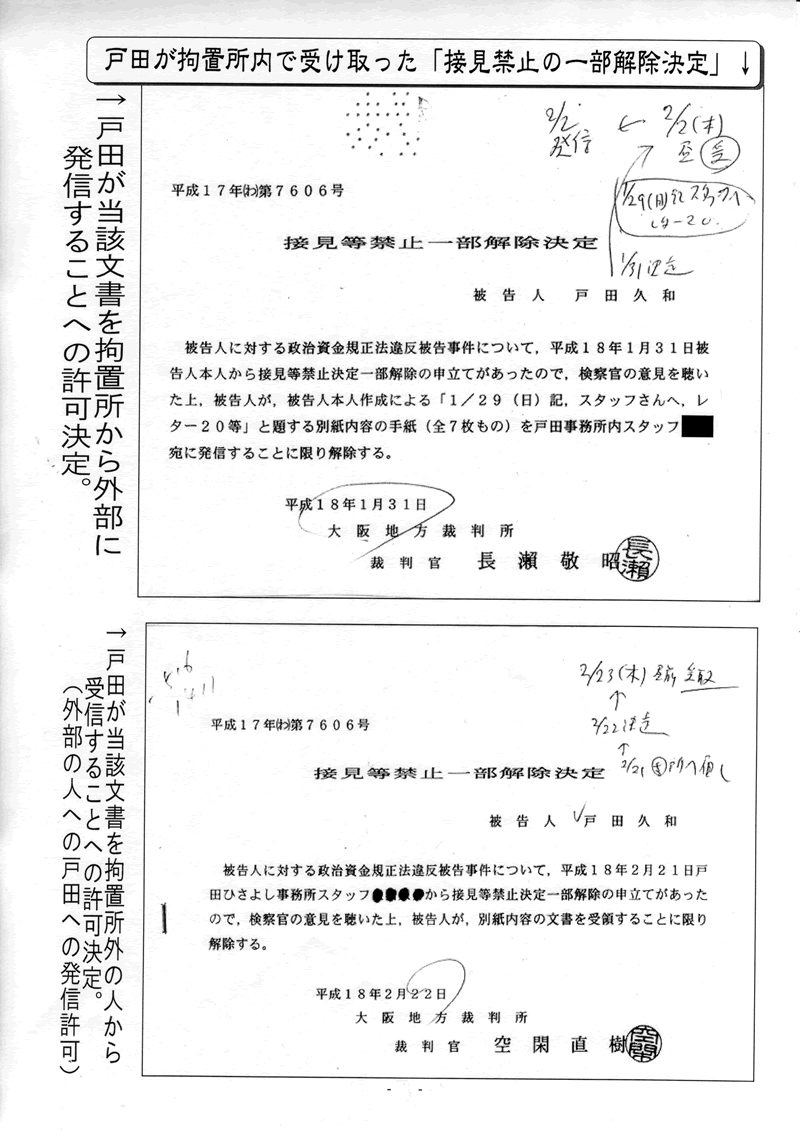 戸田が拘置所内で受け取った「接見禁止の一部解除決定」↓
→戸田が当該文書を拘置所から外部に
発信することへの許可決定。
2/2 発信 ← 2/2(木)
1/29(日)記 スタッフへ
レター20
1/31決定
平成17年(わ)第7606号
接見等禁止一部解除決定
被告人 戸田久和
被告人に対する政治資金規正法違反被告事件について，平成18年1月31日被
告人本人から接見等禁止決定一部解除の申立てがあったので，検察官の意見を聴い
た上，被告人が，被告人本人作成による「1／29（日）記，スタッフさんへ，レ
ター20等」と題する別紙内容の手紙（全7枚もの）を戸田事務所内スタッフ
宛に発信することに限り解除する。
平成18年1月31日
大阪地方裁判所
裁判官 長瀬敬昭
長瀬
→戸田が当該文書を拘置所外の人から
受信することへの許可決定。
（外部の人への戸田への発信許可）
2/23(木)
2/22決定
2/21
平成17年(わ)第7606号
接見等禁止一部解除決定
被告人 戸田久和
被告人に対する政治資金規正法違反被告事件について，平成18年2月21日戸
田ひさよし事務所スタッフ●●●●から接見等禁止決定一部解除の申立てがあった
ので，検察官の意見を聴いた上，被告人が，別紙内容の文書を受領することに限り
解除する。
平成18年2月22日
大阪地方裁判所
裁判官 空閑直樹
空閑
- -